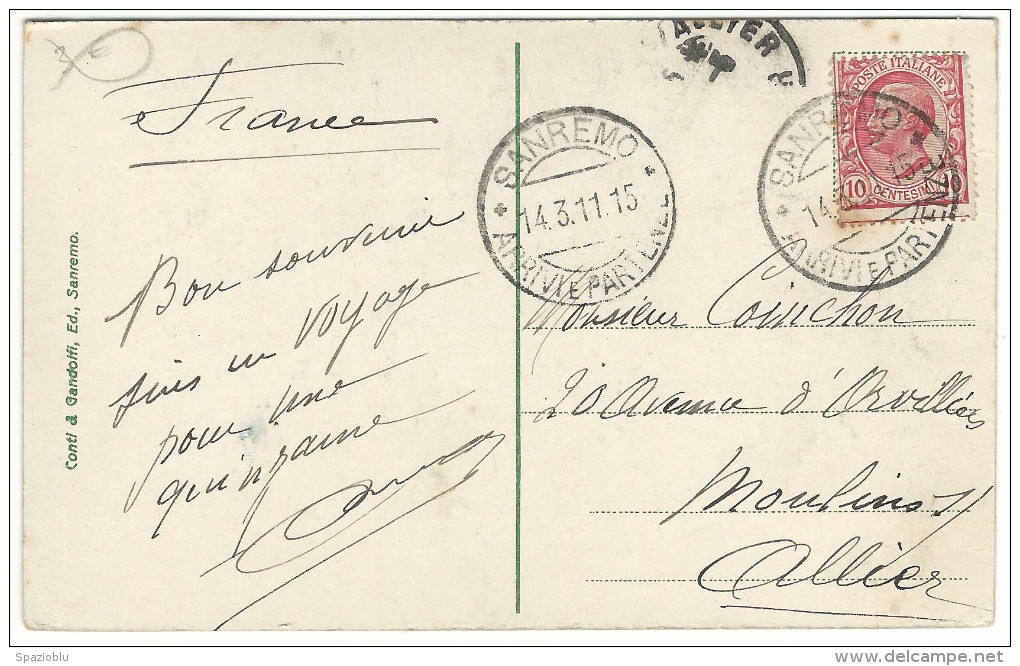 France
Bon souvenir
suis en voyage
pour une
quinzaine
Conti & Gandolfi, Ed., Sanremo.
ALLIER
SANREMO
14.3.11.15
ARRIVI E PARTENZE
POSTE ITALIANE
10 CENTESIMI 10
SANREMO
14.3 15
ARRIVI E PARTENZE
Monsieur
20 Avenue d'Orvilliers
Moulins s/
Allier
Spazioblu
delcampe.net